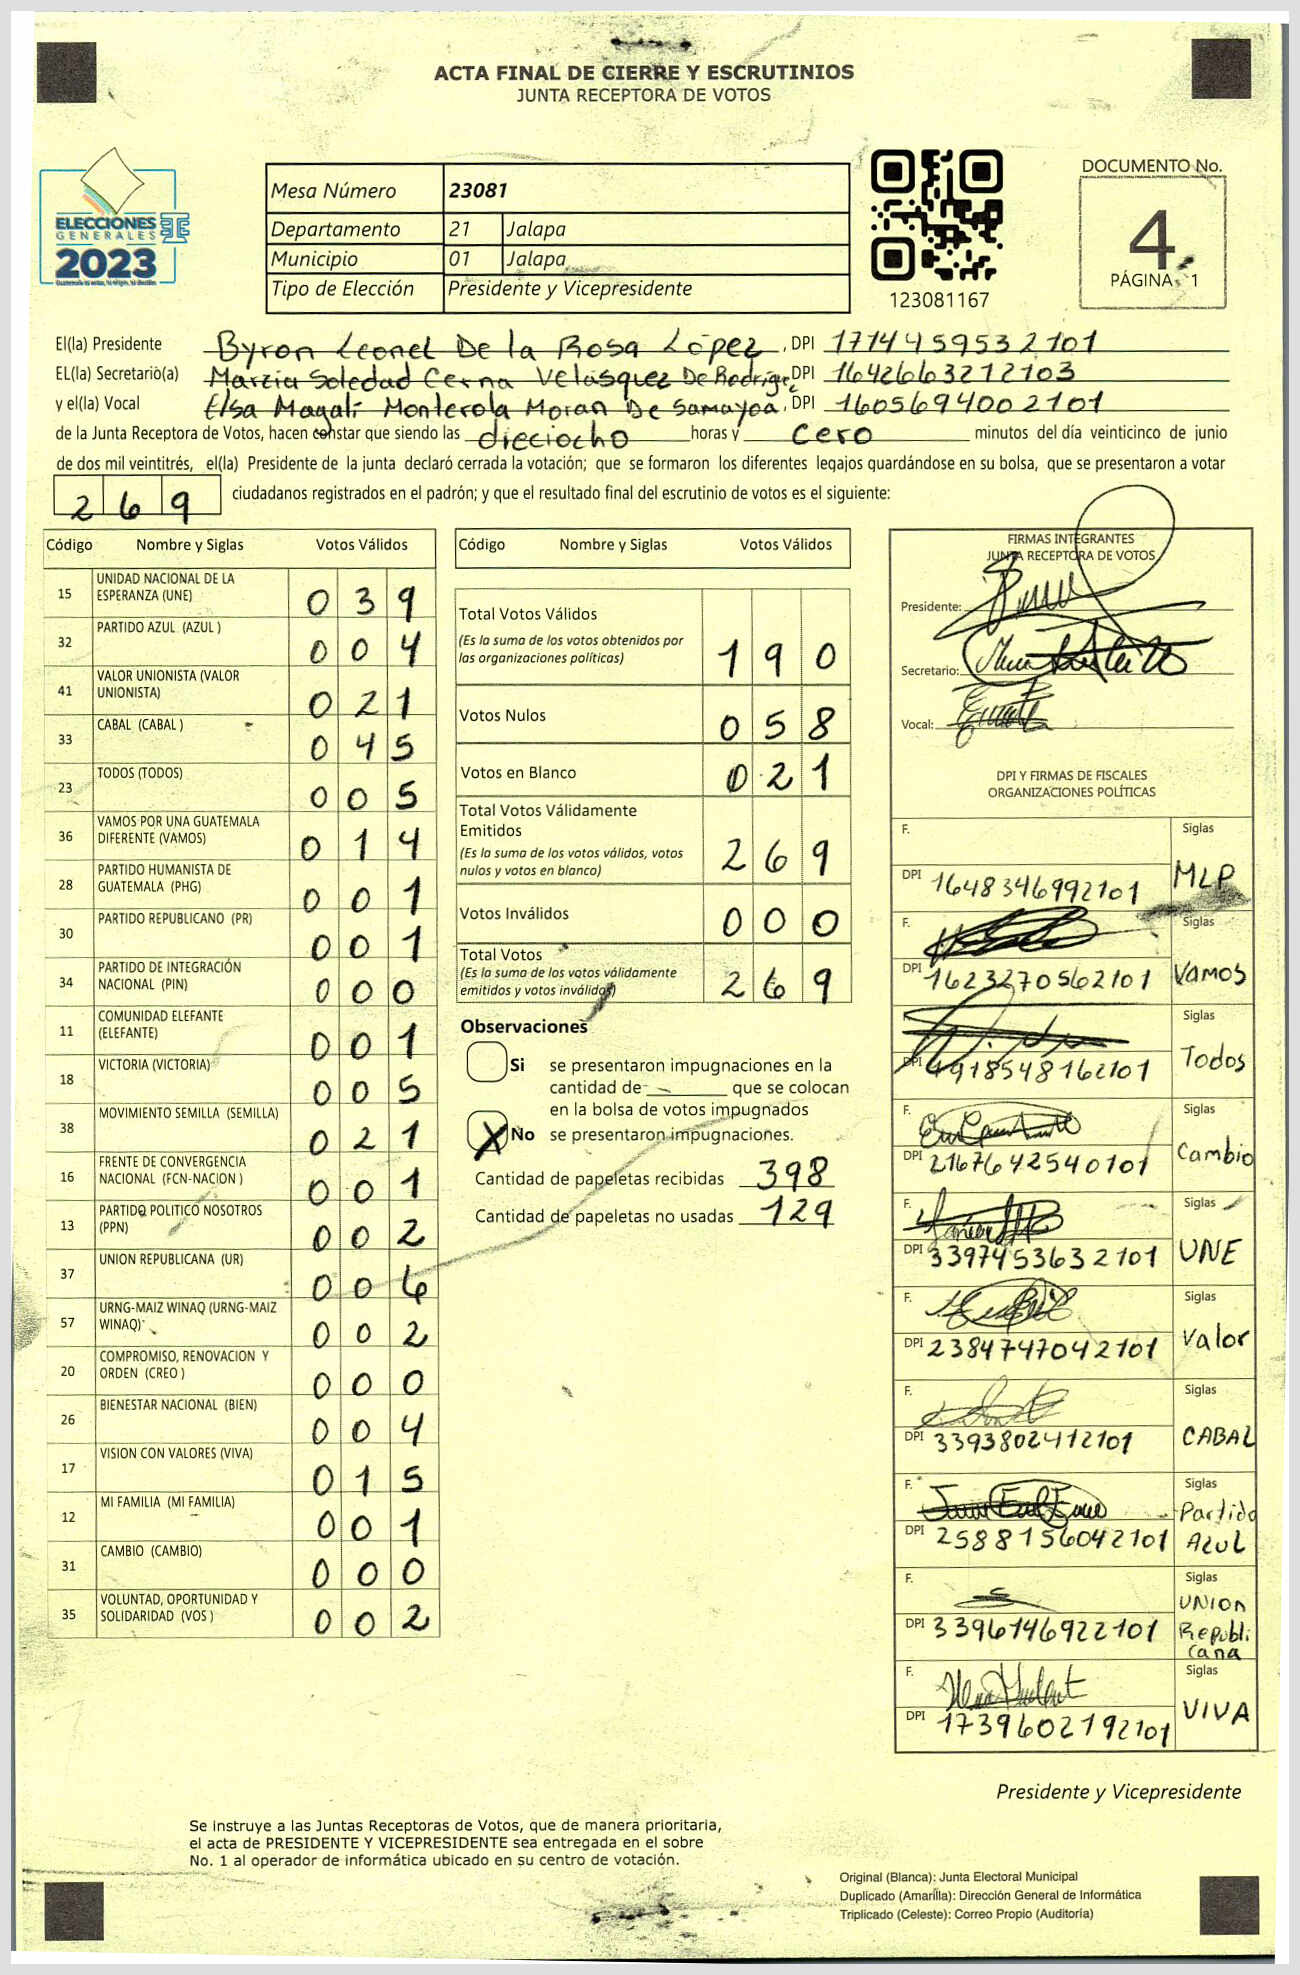 ACTA FINAL DE CIERRE Y ESCRUTINIOS
JUNTA RECEPTORA DE VOTOS
ELECCIONES
GENERALES
2023
Mesa Número 23081
Departamento 21 Jalapa
Municipio 01 Jalapa
Tipo de Elección Presidente y Vicepresidente
123081167
DOCUMENTO No.
4
PÁGINA 1
El(la) Presidente Byron Leonel De la Rosa López, DPI 1714459532101
EL(la) Secretario(a) Marzia Soledad Cerna Velásquez De Rodríge, DPI 1642663212103
y el(la) Vocal Elsa Magali Monterola Moran De Samayoa, DPI 1605694002101
de la Junta Receptora de Votos, hacen constar que siendo las dieciocho horas y cero minutos del día veinticinco de junio
de dos mil veintitrés, el(la) Presidente de la junta declaró cerrada la votación; que se formaron los diferentes legajos guardándose en su bolsa, que se presentaron a votar
269 ciudadanos registrados en el padrón; y que el resultado final del escrutinio de votos es el siguiente:
Código Nombre y Siglas Votos Válidos
15 UNIDAD NACIONAL DE LA ESPERANZA (UNE) 039
32 PARTIDO AZUL (AZUL ) 004
41 VALOR UNIONISTA (VALOR UNIONISTA) 021
33 CABAL (CABAL ) 045
23 TODOS (TODOS) 005
36 VAMOS POR UNA GUATEMALA DIFERENTE (VAMOS) 014
28 PARTIDO HUMANISTA DE GUATEMALA (PHG) 001
30 PARTIDO REPUBLICANO (PR) 001
34 PARTIDO DE INTEGRACIÓN NACIONAL (PIN) 000
11 COMUNIDAD ELEFANTE (ELEFANTE) 001
18 VICTORIA (VICTORIA) 005
38 MOVIMIENTO SEMILLA (SEMILLA) 021
16 FRENTE DE CONVERGENCIA NACIONAL (FCN-NACION ) 001
13 PARTIDO POLITICO NOSOTROS (PPN) 002
37 UNION REPUBLICANA (UR) 006
57 URNG-MAIZ WINAQ (URNG-MAIZ WINAQ) 002
20 COMPROMISO, RENOVACION Y ORDEN (CREO ) 000
26 BIENESTAR NACIONAL (BIEN) 004
17 VISION CON VALORES (VIVA) 015
12 MI FAMILIA (MI FAMILIA) 001
31 CAMBIO (CAMBIO) 000
35 VOLUNTAD, OPORTUNIDAD Y SOLIDARIDAD (VOS ) 002
Código Nombre y Siglas Votos Válidos
Total Votos Válidos 190
(Es la suma de los votos obtenidos por
las organizaciones políticas)
Votos Nulos 058
Votos en Blanco 021
Total Votos Válidamente
Emitidos 269
(Es la suma de los votos válidos, votos
nulos y votos en blanco)
Votos Inválidos 000
Total Votos 269
(Es la suma de los votos válidamente
emitidos y votos inválidos)
Observaciones
Si se presentaron impugnaciones en la
cantidad de - ______ que se colocan
en la bolsa de votos impugnados
X No se presentaron impugnaciones.
Cantidad de papeletas recibidas 398
Cantidad de papeletas no usadas 129
FIRMAS INTEGRANTES
JUNTA RECEPTORA DE VOTOS
Presidente:
Secretario:
Vocal:
DPI Y FIRMAS DE FISCALES
ORGANIZACIONES POLÍTICAS
F. Siglas
DPI 1648346992101 MLP
F. Siglas
DPI 1623270562101 VAMOS
F. Siglas
DPI 1918548162101 Todos
F. Siglas
DPI 2167642540101 Cambio
F. Siglas
DPI 3397453632101 UNE
F. Siglas
DPI 2384747042101 Valor
F. Siglas
DPI 3393802412101 CABAL
F. Siglas
DPI 2588156042101 Partido Azul
F. Siglas
DPI 3396146922101 UNION Republicana
F. Siglas
DPI 1739602192101 VIVA
Presidente y Vicepresidente
Se instruye a las Juntas Receptoras de Votos, que de manera prioritaria,
el acta de PRESIDENTE Y VICEPRESIDENTE sea entregada en el sobre
No. 1 al operador de informática ubicado en su centro de votación.
Original (Blanca): Junta Electoral Municipal
Duplicado (Amarilla): Dirección General de Informática
Triplicado (Celeste): Correo Propio (Auditoría)